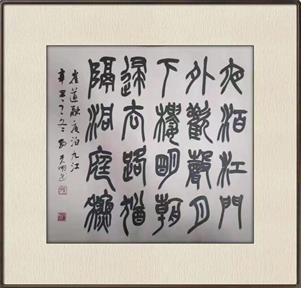 夜泊江門
外歡聲月
下樓明朝
歸去路猶
隔洞庭秋
崔道融夜泊九江
辛丑